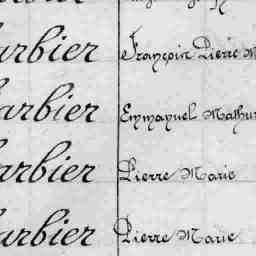 arbier François Pierre M
arbier Emmanuel Mathur
arbier Pierre Marie
arbier Pierre Marie